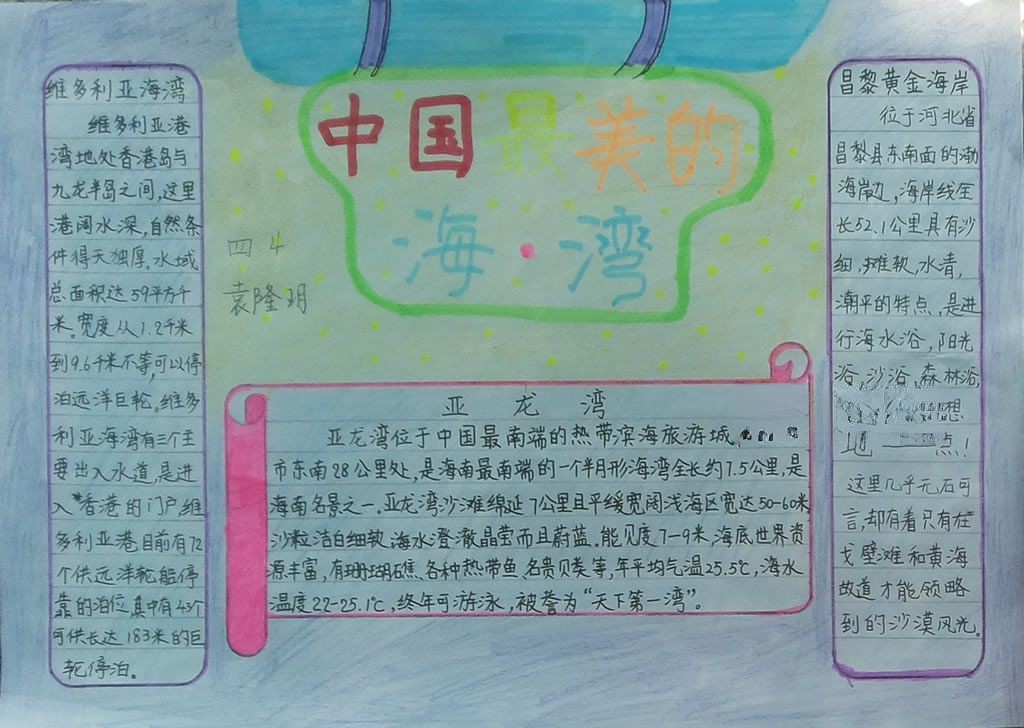 中国最美的
海·湾
四.4
袁隆玥
维多利亚海湾
维多利亚港
湾地处香港岛与
九龙半岛之间,这里
港阔水深,自然条
件得天独厚。水域
总面积达59平方千
米。宽度从1.2千米
到9.6千米不等,可以停
泊远洋巨轮。维多
利亚海湾有三个主
要出入水道,是进
入香港的门户,维
多利亚港目前有72
个供远洋轮船停
靠的泊位,其中有43个
可供长达183米的巨
轮停泊。
亚龙湾
亚龙湾位于中国最南端的热带滨海旅游城
市东南28公里处,是海南最南端的一个半月形海湾全长约7.5公里,是
海南名景之一。亚龙湾沙滩绵延7公里且平缓宽阔浅海区宽达50-60米
沙粒洁白细软,海水澄澈晶莹而且蔚蓝。能见度7-9米,海底世界资
源丰富,有珊瑚礁、各种热带鱼、名贵贝类等,年平均气温25.5℃,海水
温度22-25.1℃,终年可游泳,被誉为“天下第一湾”。
昌黎黄金海岸
位于河北省
昌黎县东南面的渤
海岸边,海岸线全
长52.1公里具有沙
细,摊软,水清,
潮平的特点,是进
行海水浴,阳光
浴,沙浴,森林浴,
想
地 点!
这里几乎无石可
言,却有着只有在
戈壁滩和黄海
故道才能领略
到的沙漠风光。